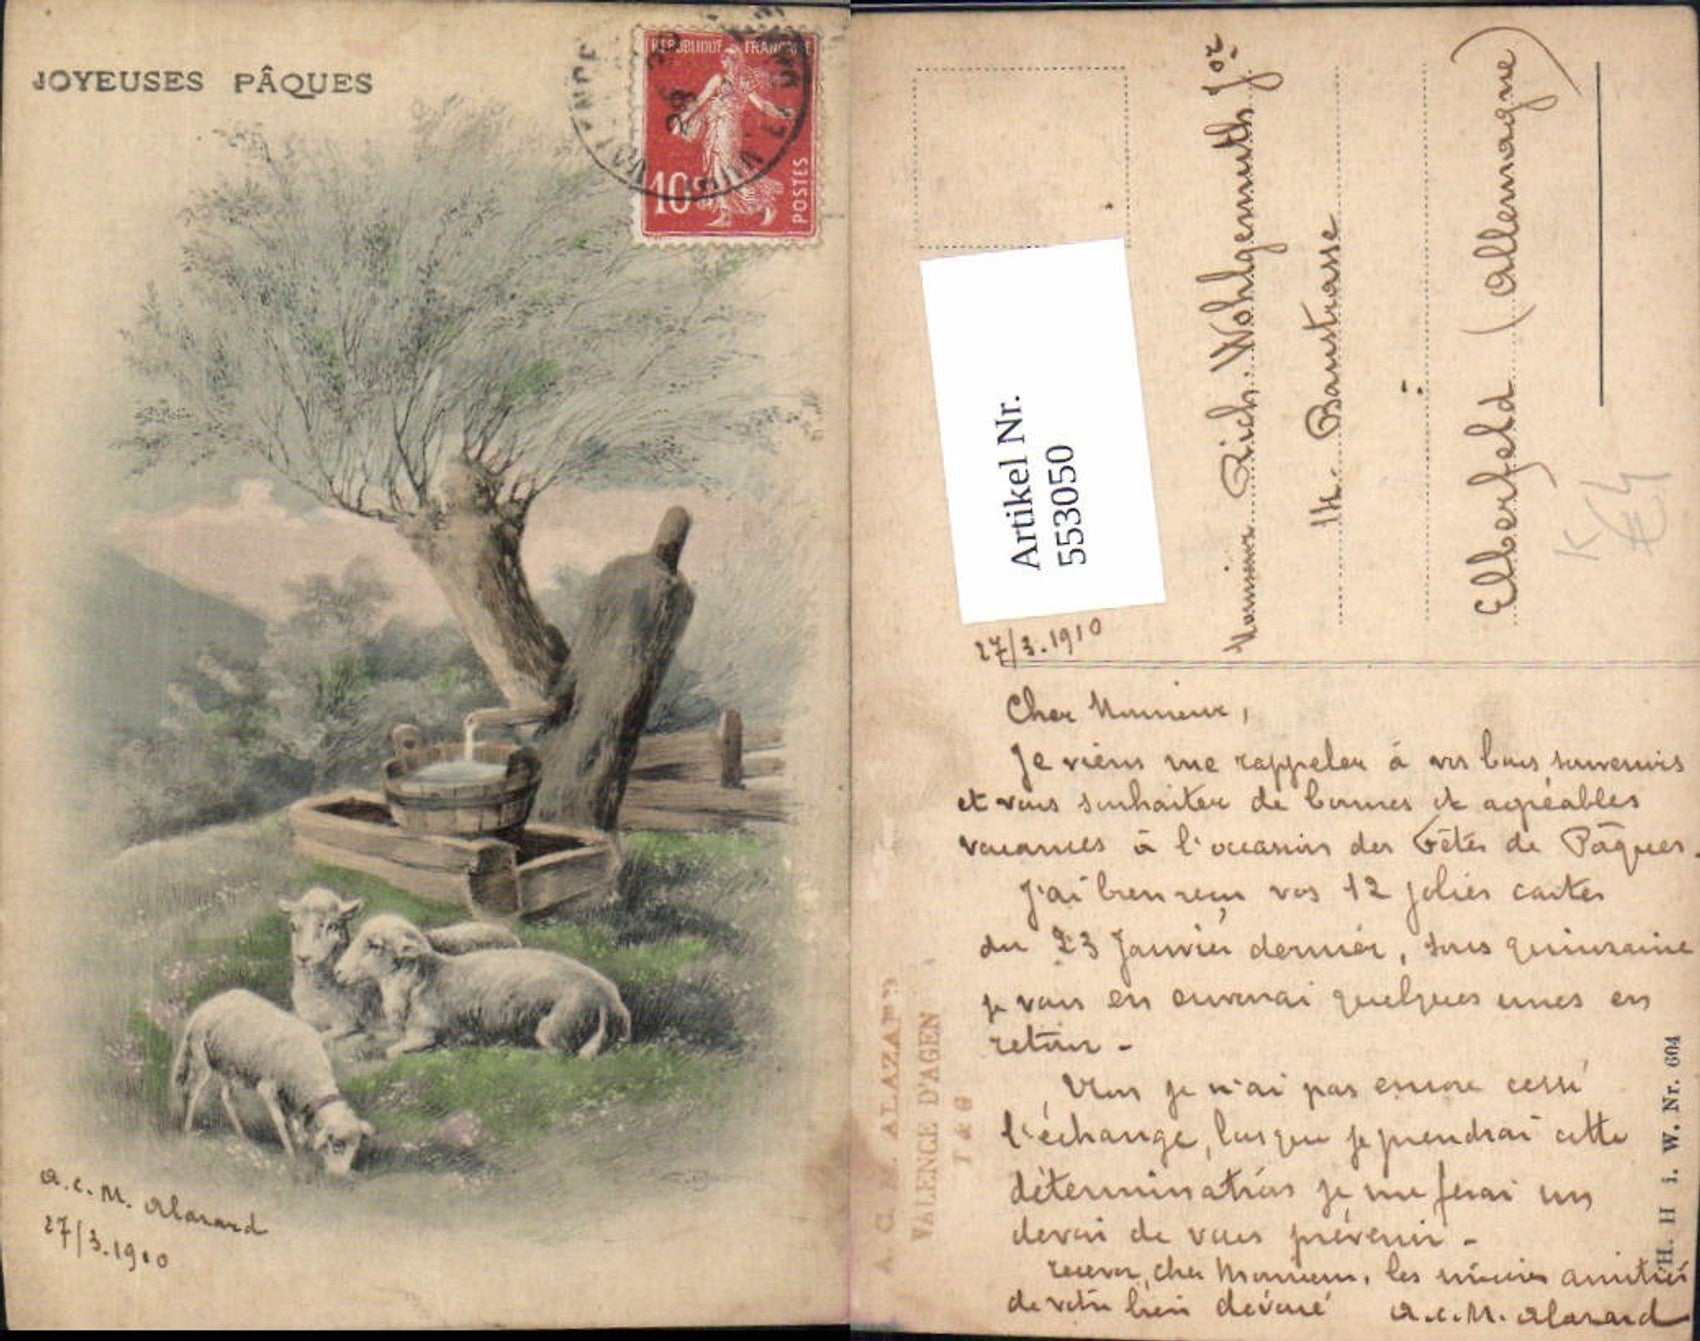 JOYEUSES PÂQUES
REPUBLIQUE FRANÇAISE
10c
POSTES
a.c. M. Alazard
27/3.1910
Artikel Nr.
553050
Monsieur Rich. Wohlgemuth Jor
Baustrasse
Elberfeld (Allemagne)
27/3.1910
Cher Monsieur,
Je viens me rappeler à vos bons souvenirs
et vous souhaiter de bonnes et agréables
vacances à l'occasion des Fêtes de Pâques.
J'ai bien reçu vos 12 jolies cartes
du 23 Janvier dernier, sous quinzaine
je vous en enverrai quelques unes en
retour -
Non je n'ai pas encore cessé
l'échange, lorsque je prendrai cette
détermination je me ferai un
devoir de vous prévenir -
recevez, cher Monsieur, les sincères amitiés
de votre bien dévoué a.c. M. Alazard
A. C. M. ALAZARD
VALENCE D'AGEN
T & G
H. H i. W. Nr. 604